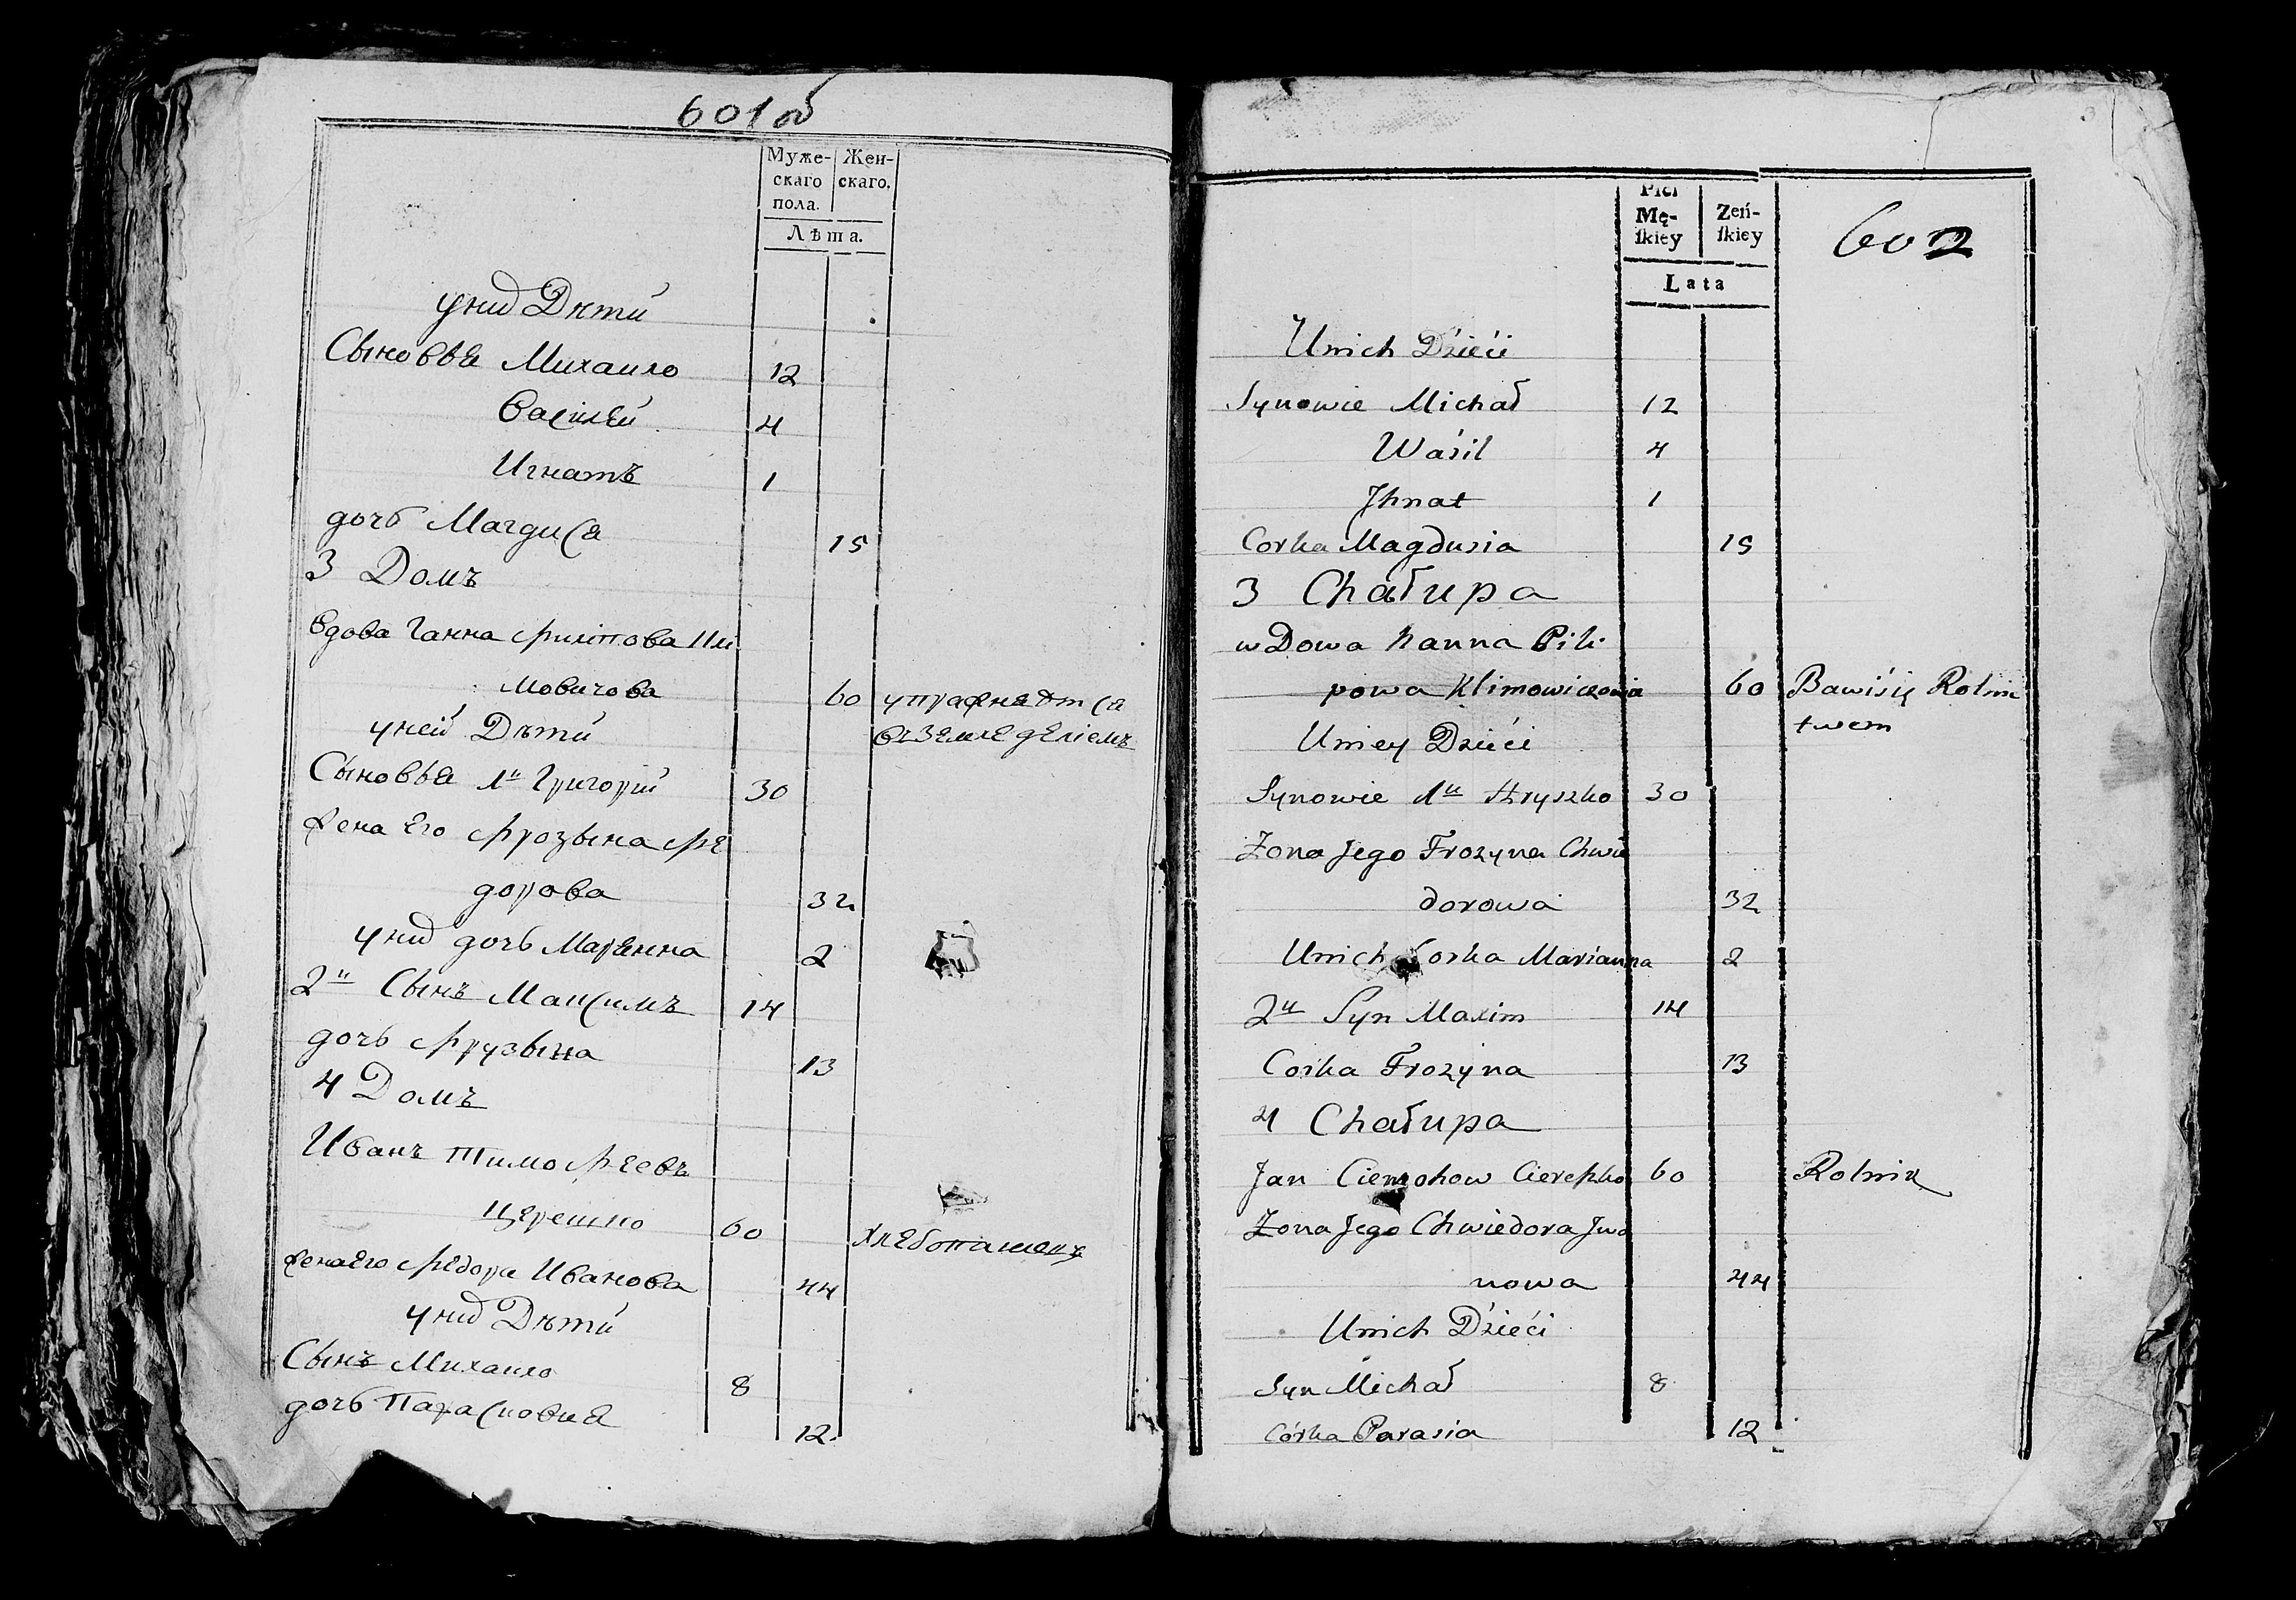 601об
Муже- Жен-
скаго скаго.
пола.
Лѣта.
уних Дѣти
Сыновья Михаило 12
Василей 4
Игнатъ 1
дочь Магдися 15
3 Домъ
вдова Ганна Филипова Кли
мовичова 60 упражняется
уней Дѣти вземледелiемъ
Сыновья 1й Григорiй 30
жена Его Фрозына Фе
дорова 32
уних дочь Марянна 2
2й Сынъ Максимъ 14
дочь Фрузына 13
4 Домъ
Иванъ Тимофеевъ
Церешко 60 хлебопашецъ
женаЕго Федора Иванова 44
уних Дѣти
Сынъ Михаило 8
дочь Парасковия 12.
Płci
Mę- Zeń-
ſkiey ſkiey
602
Lata
Unich Dzieći
Synowie Michał 12
Waśil 4
Jhnat 1
Corka Magdusia 15
3 Chałupa
wDowa Hanna Pili
powa Klimowiczowa 60 Bawiśię Rolnic
Uniey Dzieći twem
Synowie 1u Hryszko 30
Żona Jego Frozyna Chwie
dorowa 32
Unich Corka Marianna 2
2u Syn Maxim 14
Corka Frozyna 13
4 Chałupa
Jan Ciemohow Cierezko 60 Rolnik
Żona Jego Chwiedora Jwa
nowa 44
Unich Dzieći
Syn Michał 8
Córka Parasia 12